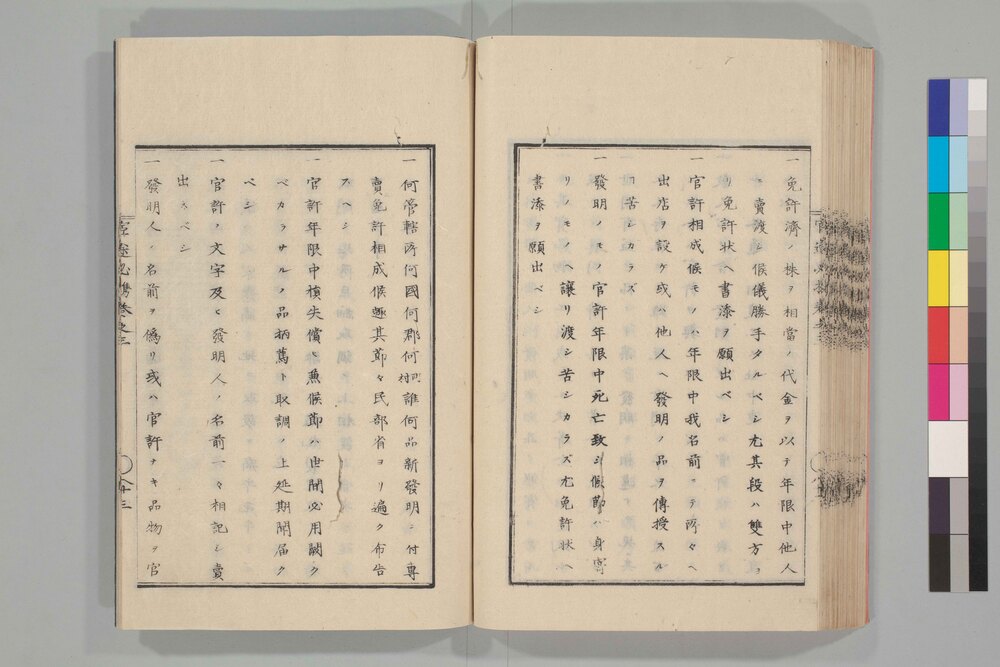 一免許濟ノ株ヲ相當ノ代金ヲ以テ年限中他人
ヘ賣渡シ候儀勝手タルベシ尤其段ハ雙方ヨ
リ免許状ヘ書漆ヲ願出ベシ
一官許相成候モノハ年限中我名前ニテ所々ヘ
出店ヲ設ケ或ハ他人ヘ發明ノ品ヲ傳授スル
口苦シカラズ
一發明ノモノ官許年限中死亡致シ候節ハ身寄
リノモノヘ讓リ渡シ苦シカラズ尤免許状ヘ
書漆ヲ願出ベシ
一何管轄所何國何郡何町村誰何品新發明ニ付專
賣免許相成候趣其節々民部省ヨリ遍ク布告
スヘシ
一官許年限中損失償ヒ兼候節ハ世間必用闕ク
ベカラサルノ品柄篤ト取調ノ上延期聞届ク
ベシ
一官許ノ文字及ヒ發明人ノ名前一々相記シ賣
出スベシ
一發明人ノ名前ヲ偽リ或ハ官許ナキ品物ヲ官